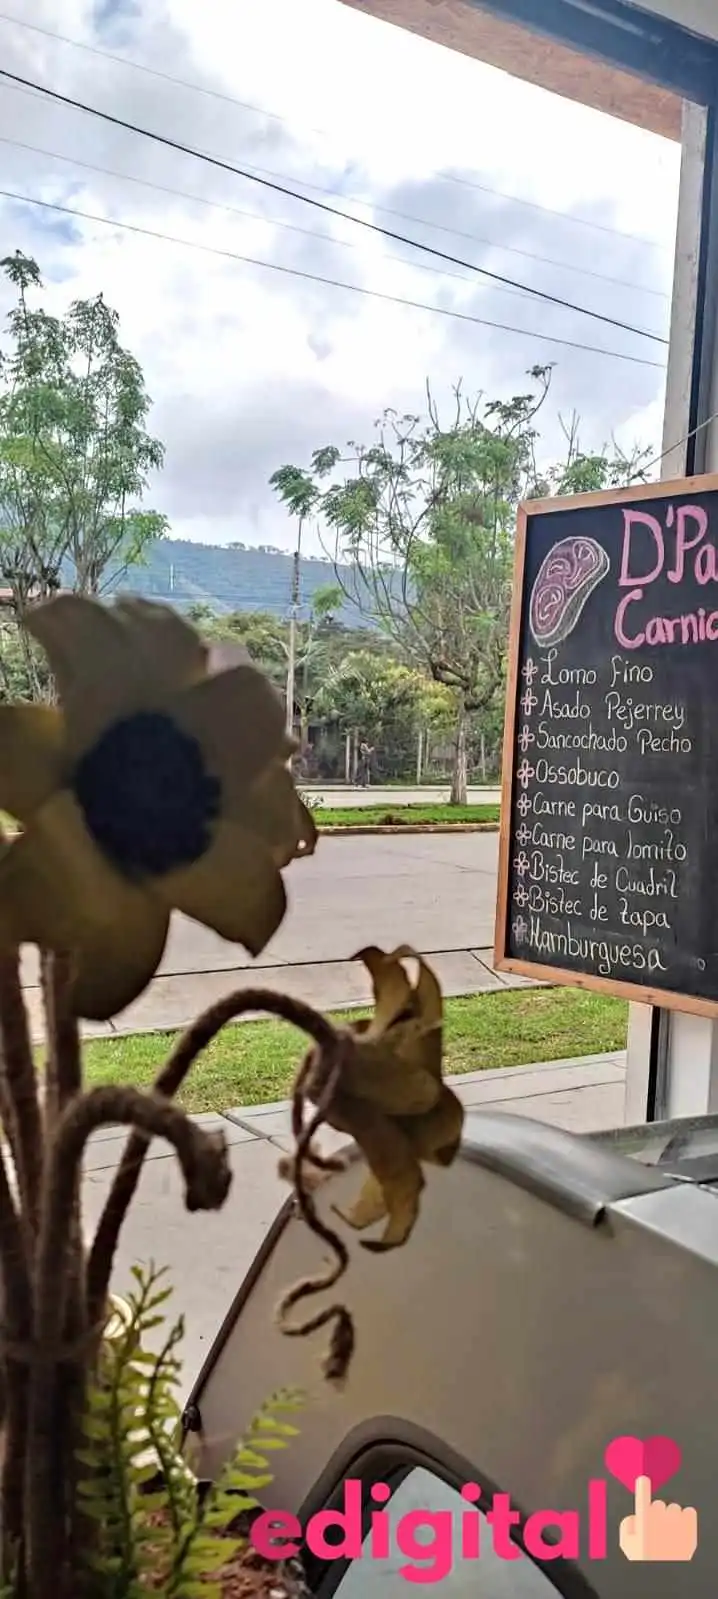 D'Pa
Carnic
Lomo fino
Asado Pejerrey
Sancochado Pecho
Ossobuco
Carne para Guiso
Carne para lomito
Bistec de Cuadril
Bistec de tapa
Hamburguesa
edigital